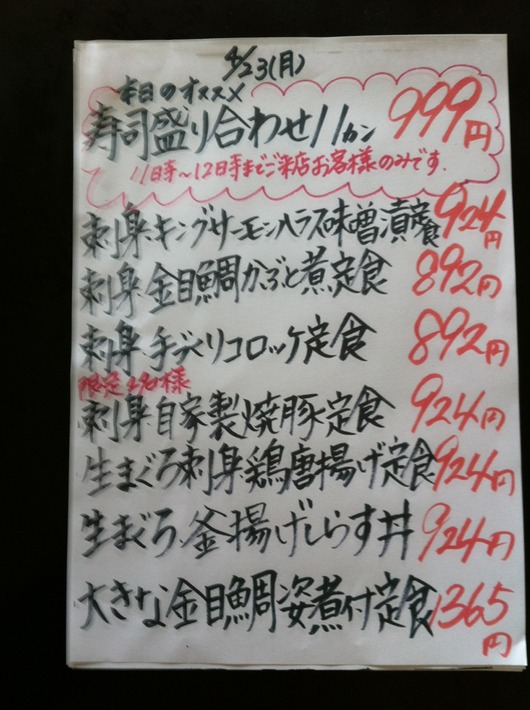 4/23(月)
本日のオススメ
寿司盛り合わせ11カン 999円
11時~12時までご来店お客様のみです.
刺身・キングサーモンハラス味噌漬定食 924円
刺身・金目鯛かぶと煮定食 892円
刺身・手づくりコロッケ定食 892円
限定 名様
刺身・自家製焼豚定食 924円
生まぐろ刺身・鶏唐揚げ定食 924円
生まぐろ、釜揚げしらす丼 924円
大きな金目鯛姿煮付定食 1365円